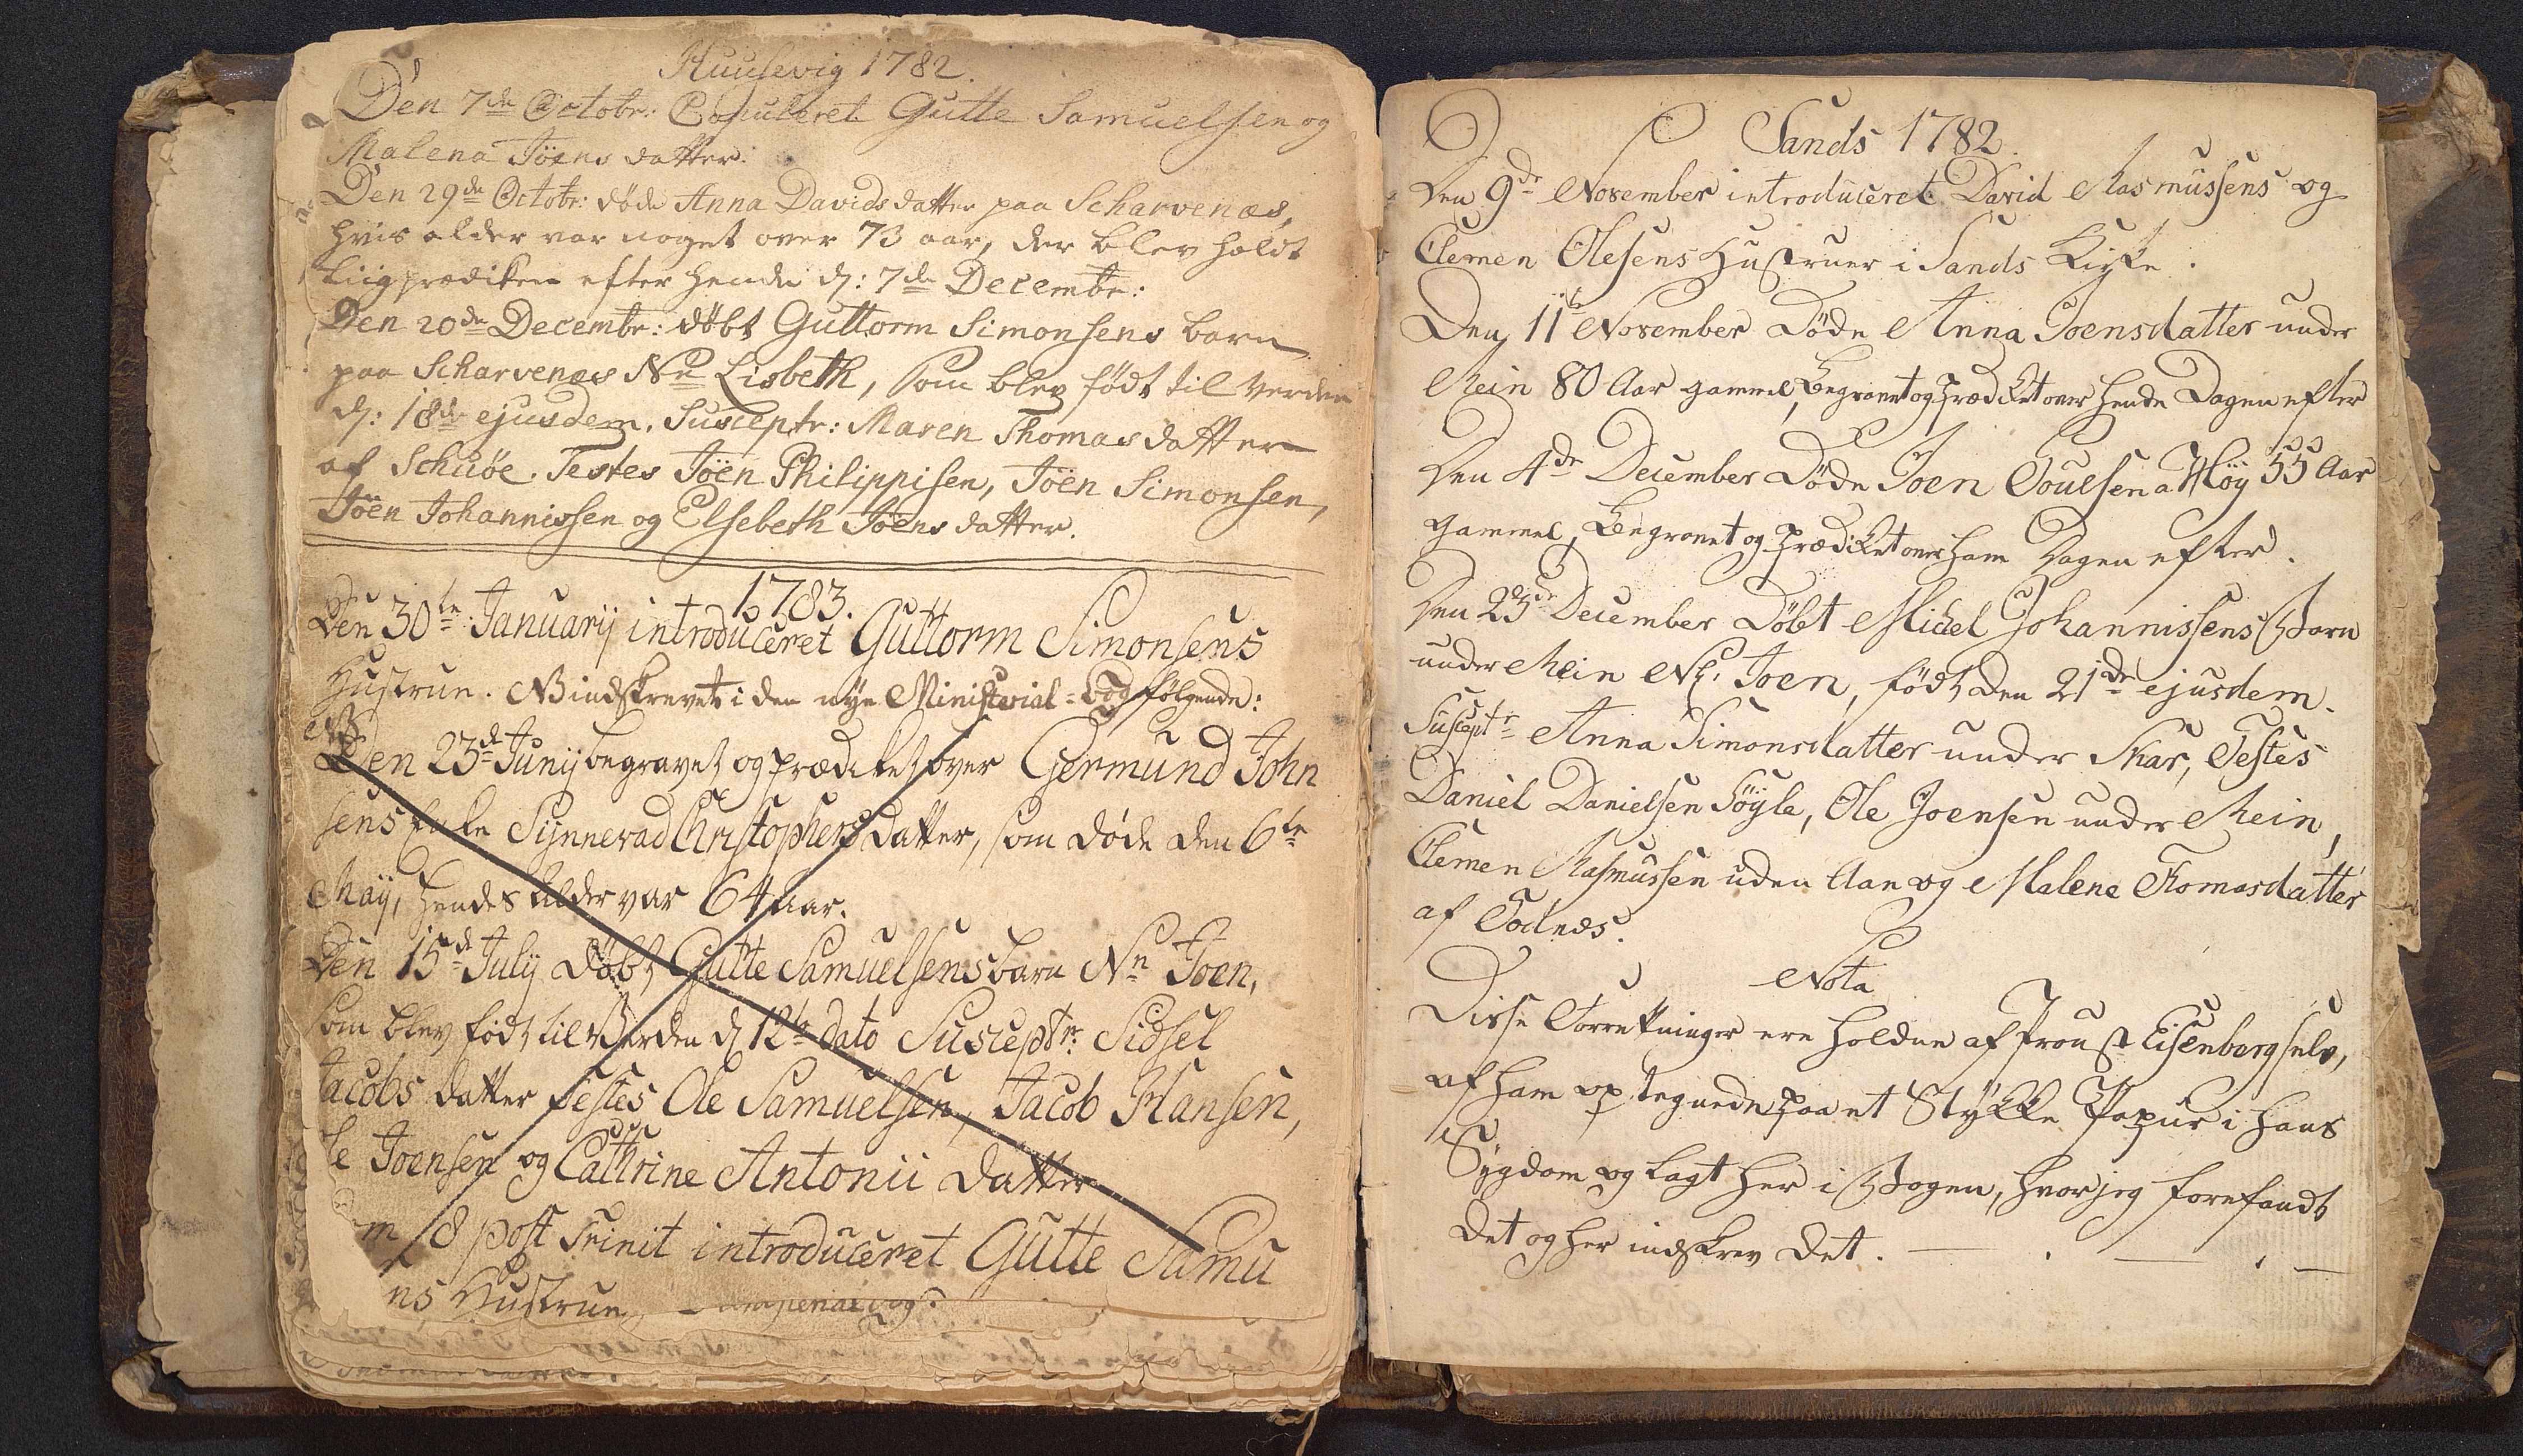 Huusevig 1782.
Den 7de Octobr: Copuleret Gutte Samuelsen og
Malena Jöens datter.
Den 29de Octobr: döde Anna Davidsdatter paa Scharvenæs,
hvis alder var noget over 73 aar, der blev holdt
Liigprædiken efter hende d: 7de Decembr:
Den 20de Decembr: döbt Guttorm Simonsens barn
paa Scharvenæs Nn Lisbeth, som blev födt til Verden
d: 18de ejusdem. Susceptr: Maren Thomasdatter
af Schuöe. Testes Jöen Philippisen, Jöen Simonsen,
Jöen Johannissen og Elsebeth Joens datter.
1783.
Den 30te Januarij introduceret Guttorm Simonsens
Hustrue. NB indskrevet i den nye Ministerial-Bog følgende:
NB
Den 23d Junij begravet og prædiket over Germund John
sens Enke Synnevad Christophersdatter, som döde den 6te
Maij, hendes Alder var 64 aar.
Den 15d Julij döbt Gutte Samuelsens barn Nn Joen,
som blev födt til Verden d 12te dato Susceptr: Sidsel
Jacobs datter Testes Ole Samuelsen, Jacob Hansen,
le Joensen og Cathrine Antonii datter
m 8 post Trinit introduceret Gutte Samu
ns Hustrue
Sands 1782.
Den 9de November introduceret David Rasmussens og
Clemen Olesens Hustruer i Sands Kirke.
Den 11te November Döde Anna Joensdatter under
Rein 80 Aar gammel, Begravet og Prædiket over hende Dagen efter
Den 4de December Döde Joen Poulsen a Höy 55 Aar
gammel, Begravet og Prædiket over ham Dagen efter.
Den 23de December Döbt Michel Johannissens Barn
under Rein Nl. Joen, födt den 21de ejusdem.
Susceptr Anna Simonsdatter under Skar, Testes
Daniel Danielsen Söyle, Ole Joensen under Rein,
Clemen Rasmussen uden Aan og Malene Thomasdatter
af Todnes.
Nota
Disse Forretninger ere holdne af Proust Eisenberg selv,
af ham optegnede paa et Stykke Papiir i hans
Sygdom og lagt her i Bogen, hvor jeg forefandt
det og her indskrev det.